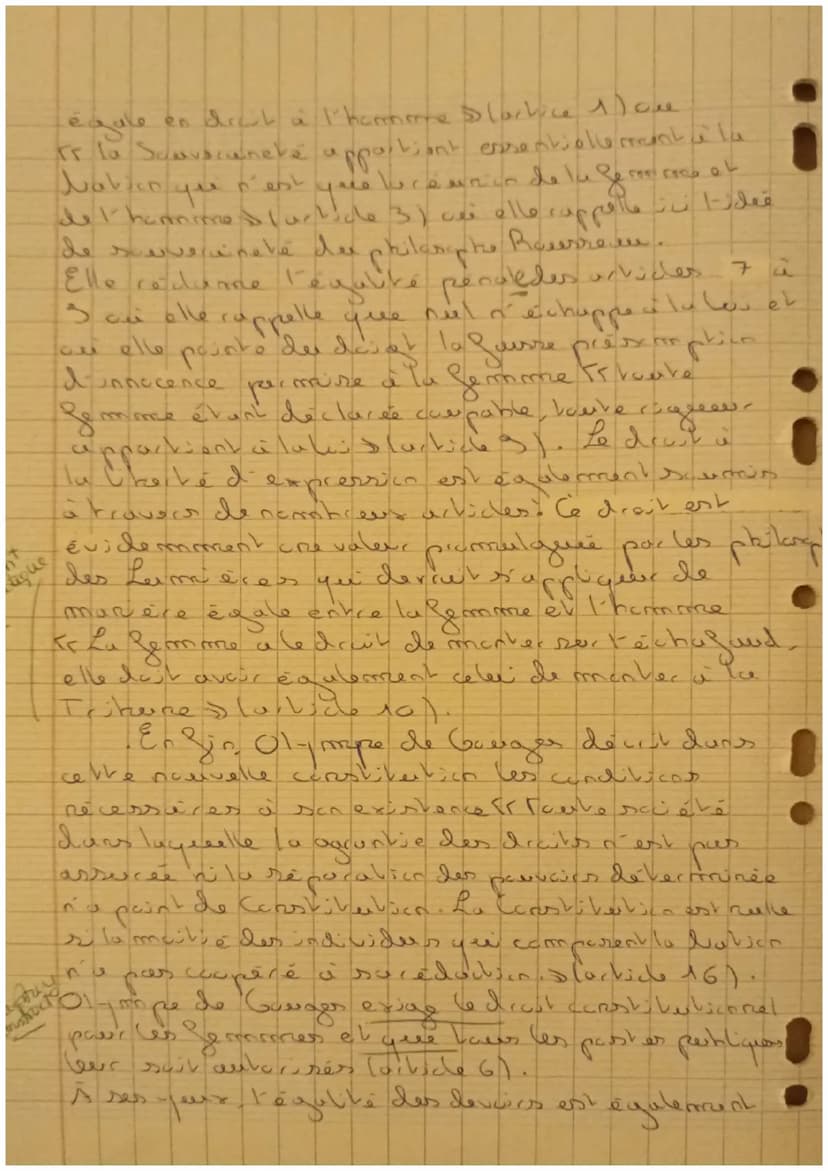 égale en droit à l'homme » (article 1) ou
« la Souveraineté appartient essentiellement à la
Nation qui n'est que la réunion de la femme et
de l'homme » (article 3) où elle rappelle ici l'idée
de souveraineté du philosophe Rousseau.
Elle réclame l'égalité pénale des articles 7 à
9 où elle rappelle que nul n'échappe à la loi et
où elle pointe du doigt la fausse présomption
d'innocence permise à la femme « toute
femme étant déclarée coupable, toute rigueur
appartient à la loi » (article 9). Le droit à
la liberté d'expression est également soumis
à travers de nombreux articles. Ce droit est
évidemment une valeur promulguée par les philosop
des Lumières qui devrait s'appliquer de
manière égale entre la femme et l'homme
« La femme a le droit de monter sur l'échafaud,
elle doit avoir également celui de monter à la
Tribune » (article 10).
Enfin, Olympe de Gouges décrit dans
cette nouvelle constitution les conditions
nécessaires à son existence « Toute société
dans laquelle la garantie des droits n'est pas
assurée ni la séparation des pouvoirs déterminée
n'a point de Constitution. La Constitution est nulle
si la moitié des individus qui composent la Nation
n'a pas coopéré à sa rédaction. » (article 16).
Olympe de Gouges exige le droit constitutionnel
pour les femmes et que tous les postes publiques
leur soit autorisés (article 6).
À ses yeux, l'égalité des devoirs est également